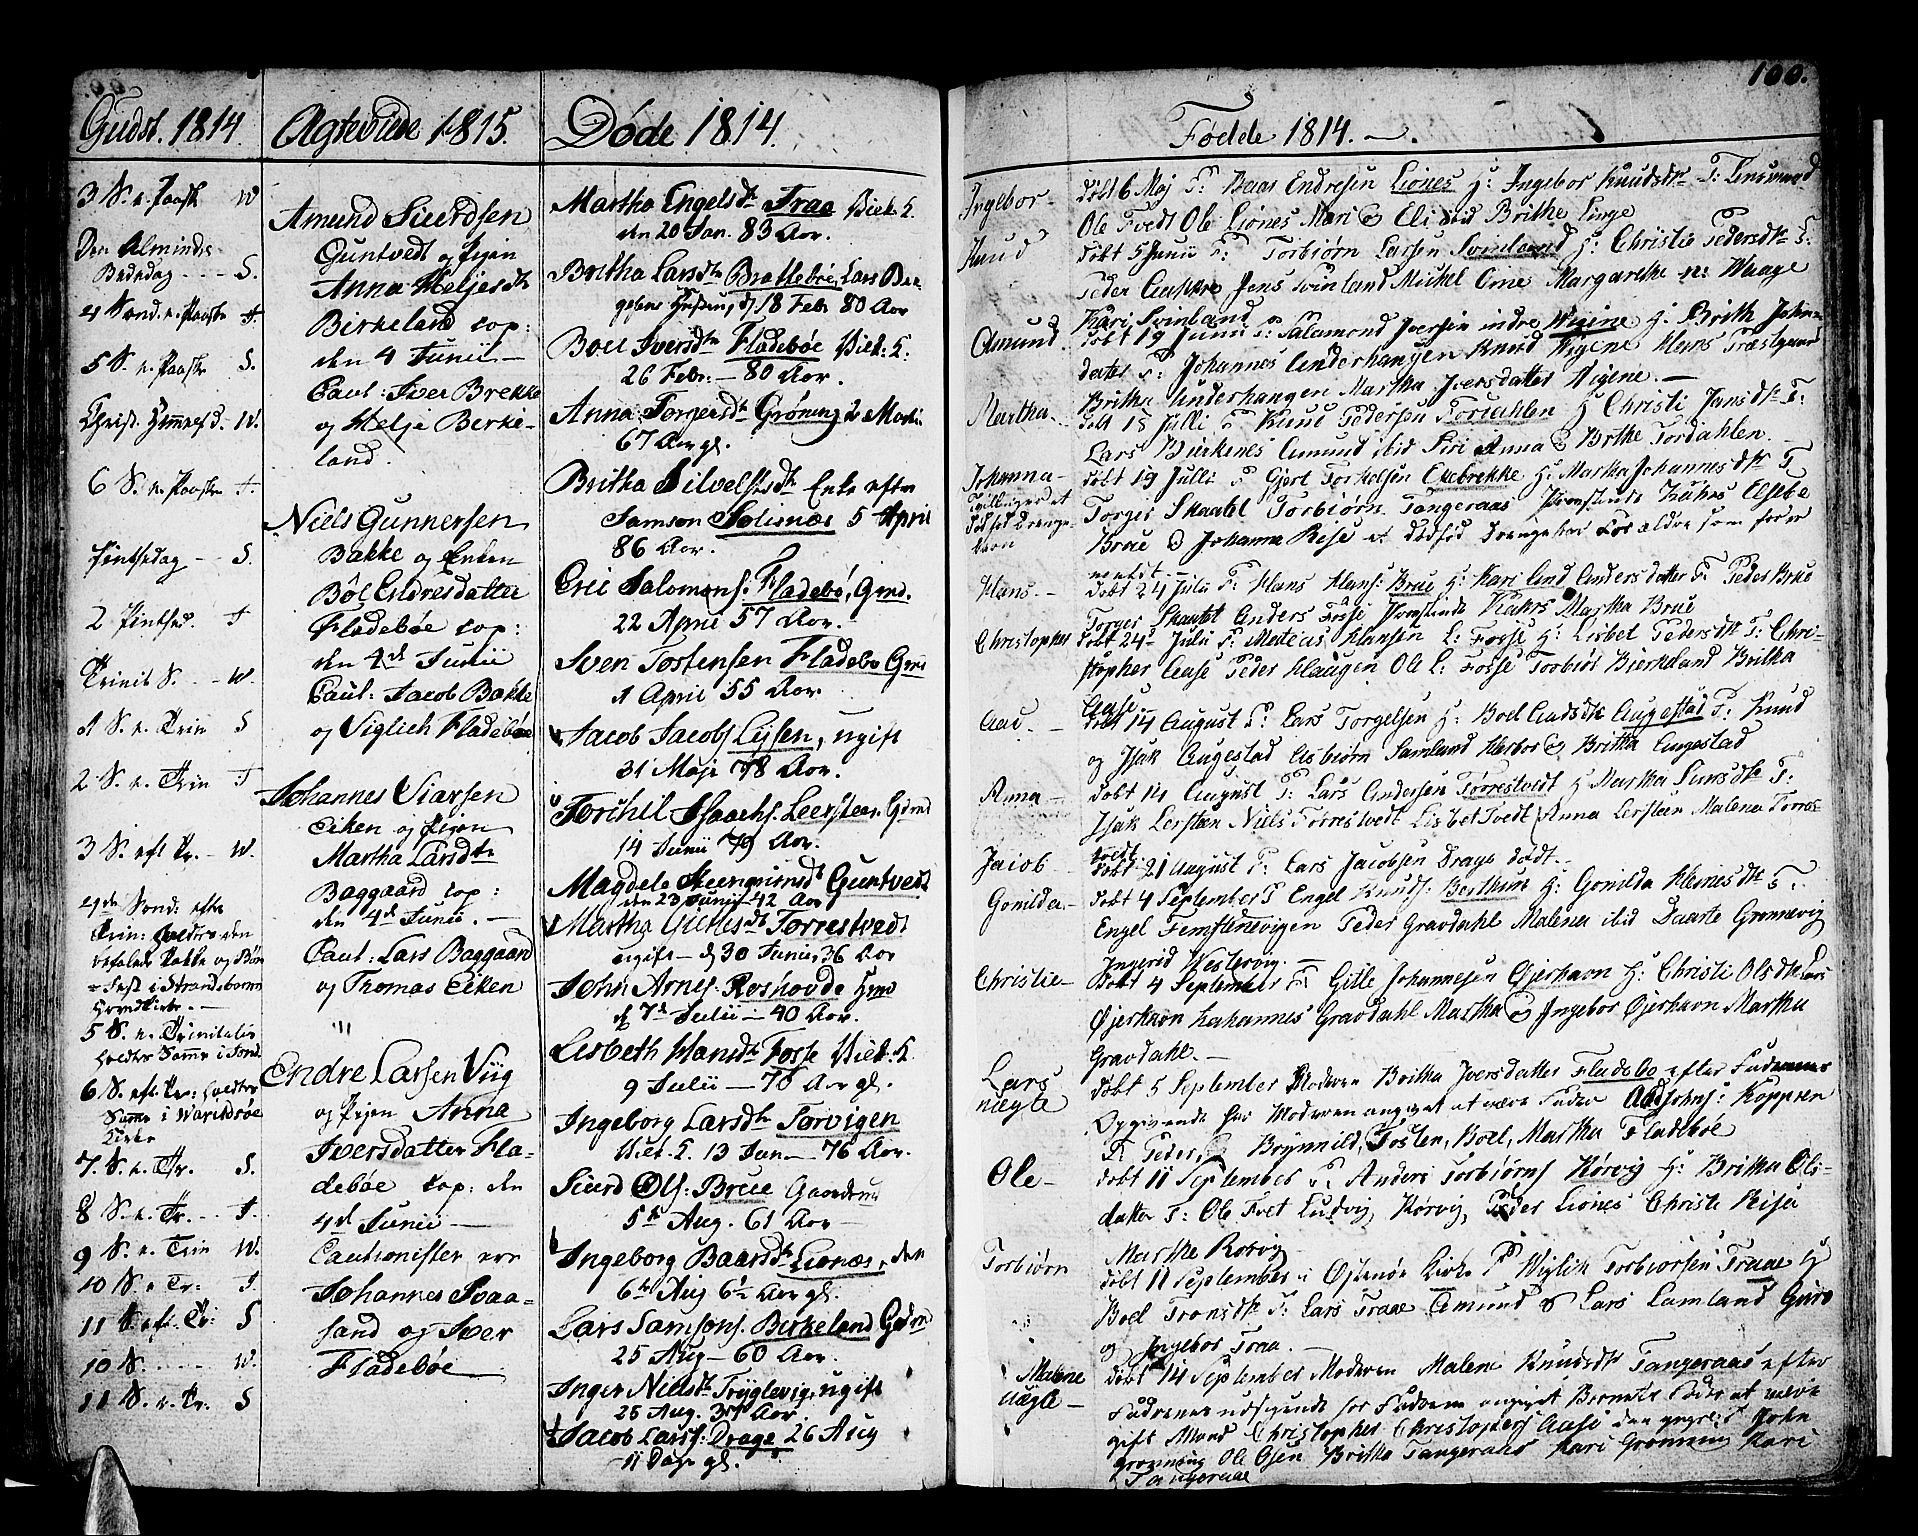 100.
Gudst. 1814.
3 S. e. Paask W
Den Alminde.
Bededag - - - S.
4 Sønd. e. Paaske T.
5 S. e. Paaske S.
Christ. Himmelf. D. W.
6 S. e. Paaske T.
Pintsedag - - S.
2 Pintsed. T
Trinit S. - - W.
1 S. e. Trin S
2 S. e. Trin T
3 S. eft Tr. - W.
4de Sønd: efter
Trin: holdtes den
befalede Takke og Bøn
Fest i Strandebarm
Hovedkirke. -
5 S. e. Trinitatis
holdtes Samme i Jond
6 S. eft Tr: holdtes
Samme i Warildsøe
Kirke
7. S. e. Tr. S.
8 S. e. Tr. - - T.
9 S. e. Trin W.
10 S. e Tr: T.
11 S. eft. Tr: S
10 S. - - - - W.
11 S. e. Tr: S
Ægteviede 1815.
Amund Siurdsen
Guntvedt og Pigen
Anna Heljesdtr
Birkeland cop:
den 4 Junii -
Caut: Iver Brekke
og Helje Birke-
land.
Niels Gunnersen
Bakke og Enken
Böl Endresdatter
Fladebøe cop:
den 4de Junii
Caut: Jacob Bakke
og Viglich Fladebøe
Johannes Siarsen
Eiken og Pigen
Martha Larsdtr
Baggaard cop:
den 4de Junii. -
Caut: Lars Baggaard
og Thomas Eiken
Endre Larsen Viig
og Pigen Anna
Iversdatter Fla-
debøe cop: den
4de Junii -
Cautionister ere
Johannes Svaa-
sand og Iver
Fladebøe
Døde 1814.
Martha Engelsdtr Traa Viet: L.
den 20 Jan. 83 Aar.
Britha Larsdtr Brattebøe, Lars Bør-
gesens Hustru, d. 18 Febr 80 Aar
Boel Iversdtr Fladebøe Viet: L:
26 Febr: - 80 Aar.
Anna Torgersdtr Grøning 2 Marti
67 Aar gl.
Britha Silvestsdtr Enke efter
Samson Solisnæs 5 April
86 Aar.
Eric Salomons: Fladebø, Gmd.
22 April 57 Aar.
Sven Tostensen Fladebø Gmd
1 April 55 Aar.
Jacob Jacobs Lyssen, ugift
31 Maji 78 Aar.
Torchil Isaachs. Leersteen Gmd
14 Junii 79 Aar.
Magdele Steengrimsdtr Guntvedt
den 23 Junii 42 Aar
Martha Gietlesdtr Torrestvedt
ugift - d. 30 Junii, 36 Aar
John Arnes. Roshovde Gmd
d. 7de Julii - 40 Aar.
Lisbeth Hansdtr Fosse Viet: L.
9 Julii - 70 Aar gl.
Ingeborg Larsdtr Torvigen
Viet. L. 13 Jun - 76 Aar.
Siurd Ols: Brue Gaardmd
5te Aug. 61 Aar -
Ingeborg Baarsdtr Lionæs, den
6te Aug 6½ Aar gl.
Lars Samsons. Birkeland Gmd
25 Aug - 60 Aar.
Inger Nielsdtr Tryglevig, ugift
25 Aug. 37 Aar
Jacob Larss: Drage 26 Aug
11 Dage gl.
Fødde 1814. -
Ingebor - døbt 6 Maj F: Baar Endresen Liones H: Ingebor Knudsdtr F:
Ole Tvedt Ole Liones Mari & Eli ibid Brithe Linge
Knud døbt 5 Junii F: Torbiørn Larsen Svinland H: Christie Pedersdtr F:
Peder Aakre Jens Svinland Michel Eine Margarethe n: Waage
Kari Svinland
Amund døbt 19 Junii F: Salamond Iversen indre Wigene H: Brith Johan-
datter F: Johannes Underhaugen Knud Wigene Hans Træstgaard
Britha Underhaugen Martha Iversdatter Wigene. -
Martha - døbt 15 Julli F Knud Pedersen Tordahlen H Christi Jansdtr F:
Lars Bierkenes Amund ibid Siri Anna & Brithe Tordahlen.
Johanna - døbt 19 Julli F Giert Torkelsen Exebrekke H: Martha Johannesdtr F
Tvillinger et
dødfød Drenge-
barn
Torger Skaatel Torbiørn Tangeraas Provstinde Kahrs Elsebe
Brue & Johanna Reise et dødfød Drengebar Forældre som før er
meldt. -
Hans. - døbt 24 Julii F: Hans Hans: Brue H: Kari Andersdatter F: Peder Brue
Torger Skaatel Anders Fosse Provstinde Kahrs Martha Brue
Christopher døbt 24 Julii F: Mateas Hansen L: Fosse H: Lisbet Pedersdtr F: Chri-
stopher Aase Peder Haugen Ole L: Fosse Torbiør Bierkeland Britha
Aase
Aad. - døbt 14 August F: Lars Torgelsen H: Boel Aadsdtr Augestad F: Knud
og Isak Augestad Aisbiørn Samland Herbor & Britha Augestad
Anna - døbt 14 August F: Lars Andersen Torrestvedt H Martha Larsdtr F:
Isak Lersteen Niels Torrestvedt Lisbet Tvedt Anna Lersteen Malena Torres-
tvedt
Jaciob døbt 21 August F: Lars Jacobsen Drage dødt. -
Gonilda - døbt 4 September F Engel Knuds: Berthun H: Gonilda Hernesdtr F:
Engel Femstenevigen Peder Gravdahl Malena ibid Daarte Grønnevig
Ingerid Westervig. -
Christie - døbt 4 September F Gitle Johannesen Øjerhavn H: Christi Olsdtr Lars
Øjerhavn Johannes Gravdahl Martha & Ingebor Øjerhavn Martha
Gravdahl. -
Lars
uægte døbt 5 September Moderen Britha Iversdatter Fladebo efter Fadderenes
Opgivende har Moderen angivet at være Fader Aad Johns: Koppren
F: Peder, & Brynnild, Tosten, Boel, Martha Fladebøe
Ole - døbt 11 September F: Anders Torbiørns Korvig H: Britha Ols-
datter F: Ole Tvet Ludvig Korvig, Peder Liones Christi Reisa
Marthe Rorvig
Torbiørn døbt 11 September i Øistesø Kirke F Wiglik Torbiorsen Traae H
Boel Tronsdtr F: Lars Traae Amund & Lars Lamland Guro
og Ingebor Traa. -
Malene
uægte - døbt 14 September Moderen Malene Knudsdtr Tangeraas efter
Faddrenes udsigende for Fadderne angivet Barnets Fader at være
gift Mand Christopher Christophers Aase den yngre: F John
Gronning Ole Osen Britha Tangeraas Kari Gronning Kari
Tangeraae